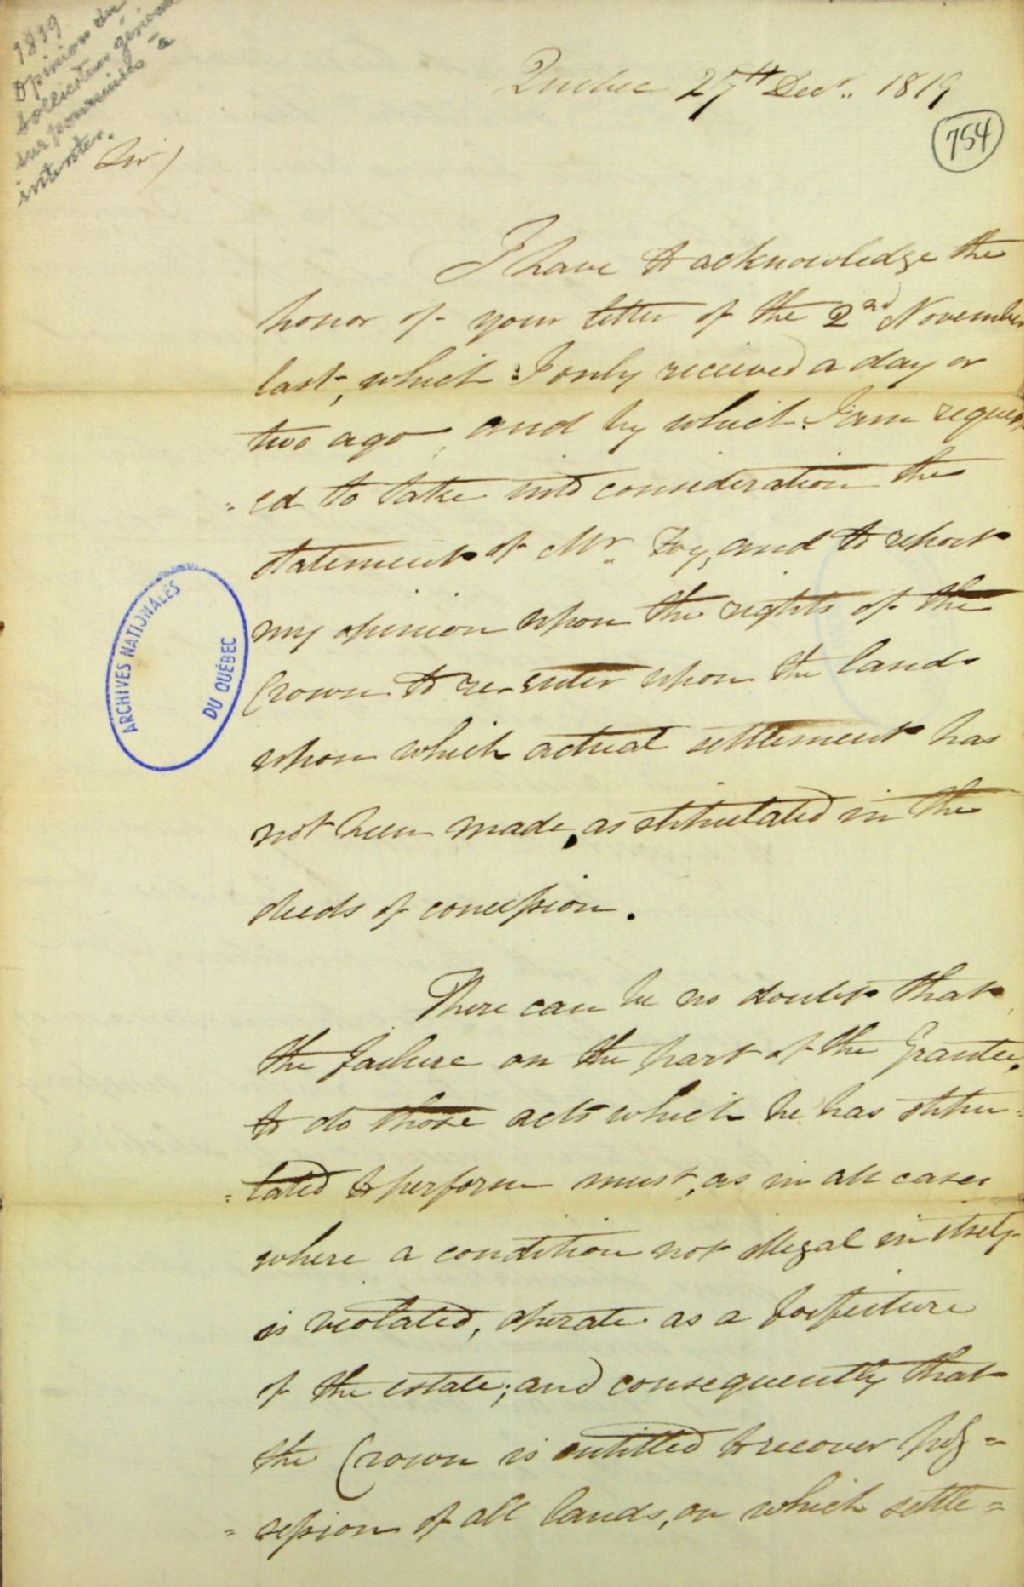 1819
Opinion du
Solliciteur général
sur poursuites à
intenter.
Quebec 27th Decr. 1819
754
Sir)
I have to acknowledge the
honor of your letter of the 2nd November
last, which I only received a day or
two ago, and by which I am request
=ed to take into consideration the
statement of Mr. Foy, and to report
my opinion upon the rights of the
Crown to re-enter upon the lands
upon which actual settlement has
not been made, as stipulated in the
deeds of concession.
ARCHIVES NATIONALES
DU QUÉBEC
There can be no doubt that
the failure on the part of the Grantee,
to do those acts which he has stipu=
=lated to perform must, as in all cases
where a condition not illegal in itself
is violated, operate as a forfeiture
of the estate; and consequently that
the Crown is entitled to recover pos=
=session of all lands, on which settle=